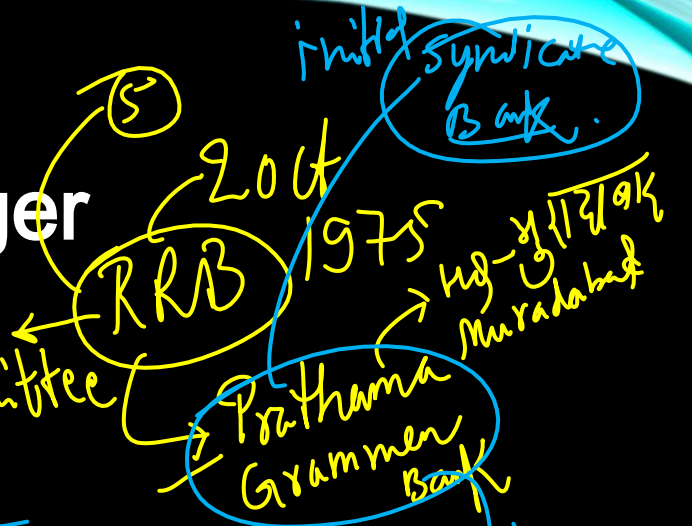 initial Syndicate
Bank.
5
2 Oct
ger
1975
RRB
HQ - मुरादाबाद
Muradabad
mittee
Prathama
Grammen
Bank